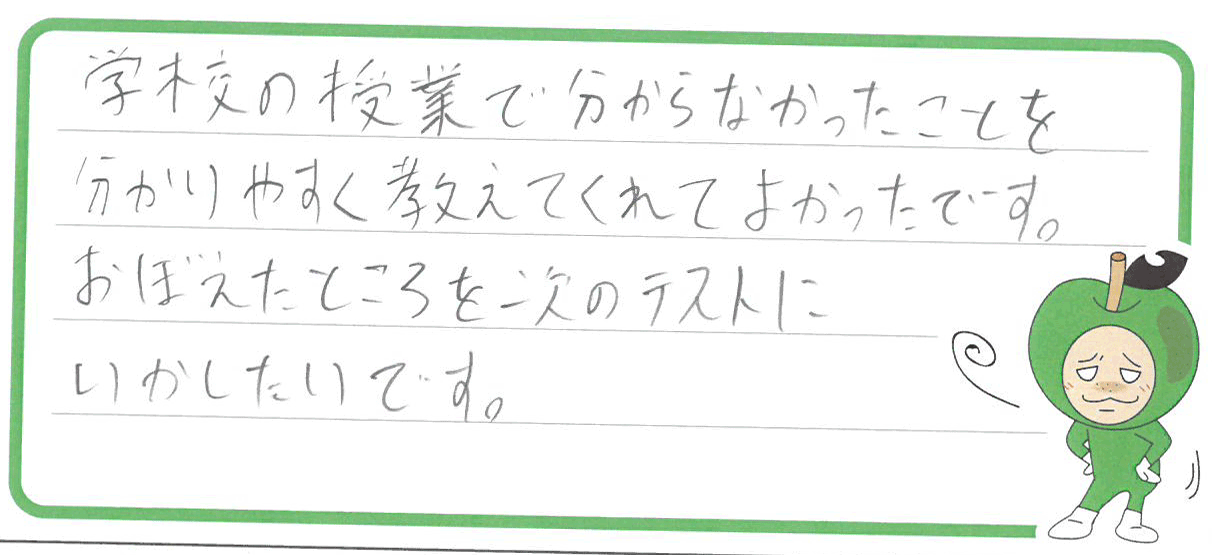 学校の授業で分からなかったことを
分かりやすく教えてくれてよかったです。
おぼえたところを次のテストに
いかしたいです。